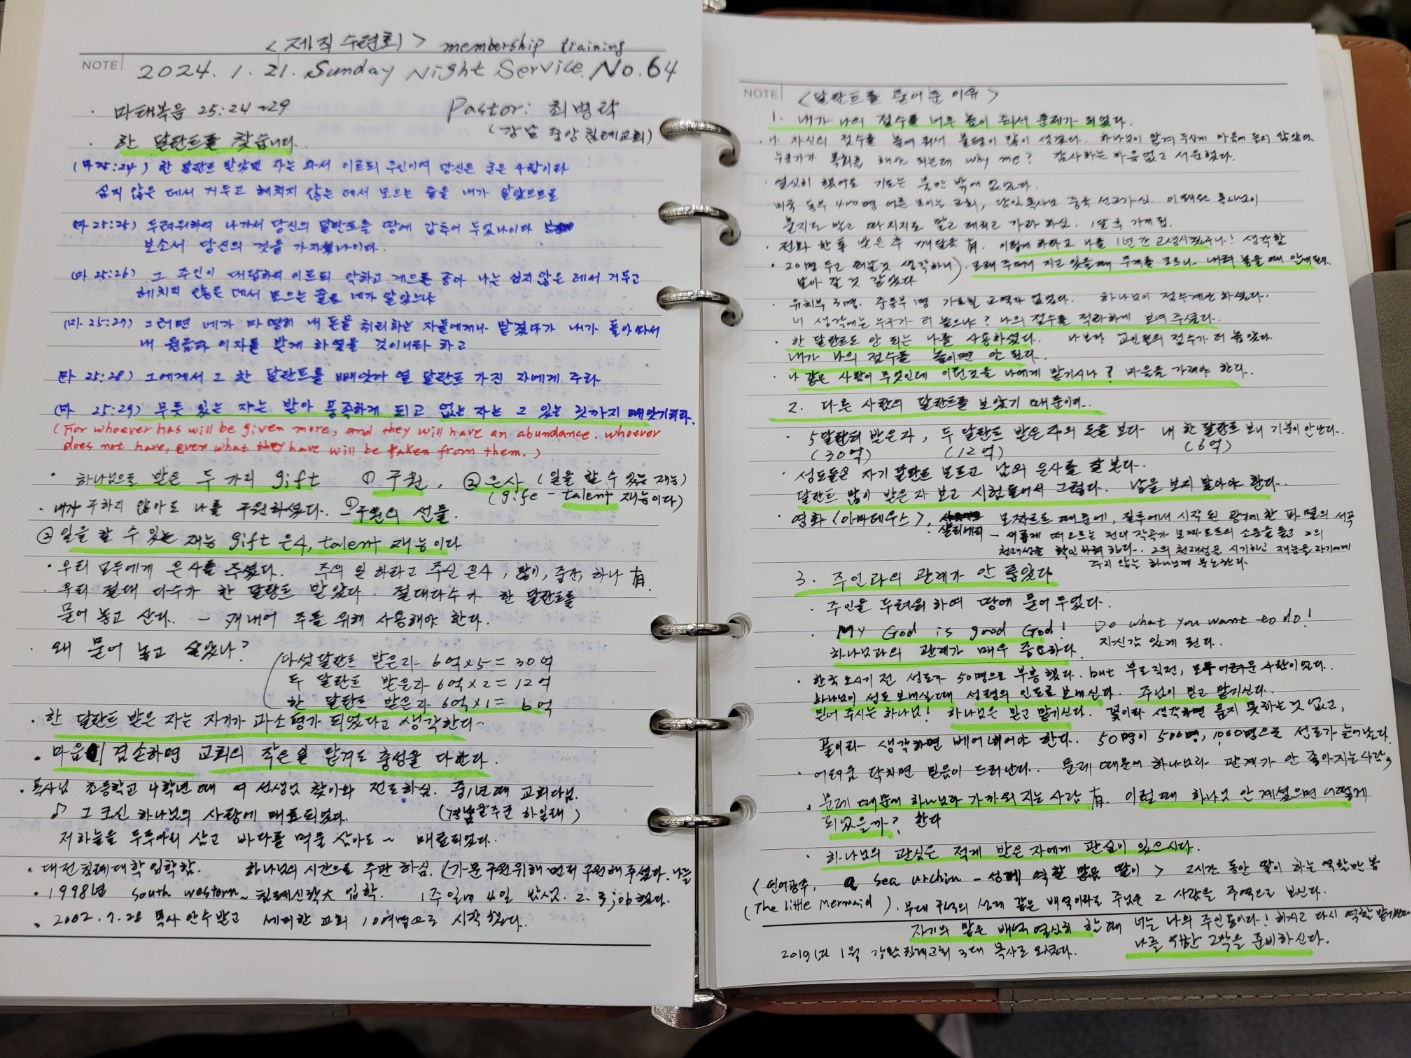 <제직 수련회> membership training
NOTE 2024. 1. 21. Sunday Night Service. No. 64
· 마태복음 25:24~29 Pastor: 최병락
· 한 달란트를 찾습니다. (강남 중앙 침례교회)
(마 25:24) 한 달란트 받았던 자는 와서 이르되 주인이여 당신은 굳은 사람이라
심지 않은 데서 거두고 헤치지 않은 데서 모으는 줄을 내가 알았으므로
(마 25:25) 두려워하여 나가서 당신의 달란트를 땅에 감추어 두었나이다
보소서 당신의 것을 가지셨나이다.
(마 25:26) 그 주인이 대답하여 이르되 악하고 게으른 종아 나는 심지 않은 데서 거두고
헤치지 않은 데서 모으는 줄로 네가 알았느냐
(마. 25:27) 그러면 네가 마땅히 내 돈을 취리하는 자들에게나 맡겼다가 내가 돌아와서
내 원금과 이자를 받게 하였을 것이니라 하고
(마 25:28) 그에게서 그 한 달란트를 빼앗아 열 달란트 가진 자에게 주라
(마 25:29) 무릇 있는 자는 받아 풍족하게 되고 없는 자는 그 있는 것까지 빼앗기리라.
(For whoever has will be given more, and they will have an abundance. whoever
does not have, even what they have will be taken from them.)
· 하나님으로 받은 두 가지 gift ① 구원, ② 은사 (일을 할 수 있는 재능)
(gife - talent 재능이다)
· 내가 구하지 않아도 나를 구원하셨다. ① 구원의 선물.
② 일을 할 수 있는 재능 gift 은사, talent 재능이다
· 우리 모두에게 은사를 주셨다. 주의 일 하라고 주신 은사, 많이, 중간, 하나 有
· 우리 절대 다수가 한 달란트 받았다. 절대다수가 한 달란트를
묻어 놓고 산다. - 캐내어 주를 위해 사용해야 한다.
· 왜 묻어 놓고 살았나?
다섯 달란트 받은자 6억x5 = 30억
두 달란트 받은자 6억x2 = 12억
한 달란트 받은자 6억x1 = 6억
· 한 달란트 받은 자는 자기가 과소평가 되었다고 생각한다.
· 마음이 겸손하면 교회의 작은 일 맡겨도 충성을 다한다.
· 목사님 초등학교 4학년 때 여 선생님 찾아와 전도하심. 중1년때 교회다님.
♪ 그 크신 하나님의 사랑에 매료되었다.
저 하늘을 두루마리 삼고 바다를 먹물 삼아도 ~ 매료되었다.
· 대전침례대학 입학함. 하나님의 시간으로 주관하심.
· 1998년 South western 침례신학大 입학. 1주일에 4일 2. 3 job 했다.
· 2002. 7. 28 목사 안수 받고 세미한 교회 10여명으로 시작했다.
NOTE <달란트를 묻어 둔 이유>
1. 내가 나의 점수를 너무 높이 줘서 문제가 되었다.
· 나 자신의 점수를 높여 줘서 불평이 많이 생겼다.
why me? 감사하는 마음 없고 서운했다.
· 열심히 했어도 기도는 못한 밖에 없었다.
· 이렇게 하라고 나를 1년간 고생시켰구나! 생각함
· 20명 두고 떠날것 생각하니
· 유치부 3명. 중등부 1명
네 생각에는 누구가 더 높으냐? 나의 점수를 정확하게 보여 주셨다.
· 한 달란트도 안 되는 나를 사용하셨다. 나보다 교인들의 점수가 더 높았다
내가 나의 점수를 높이면 안 된다.
· 나 같은 사람이 무엇인데 이런것을 나에게 맡기시나? 마음을 가져야 한다.
2. 다른 사람의 달란트를 보았기 때문이다.
· 5달란트 받은자, 두 달란트 받은 주의 돈을 보다 내 한 달란트 보니 기분이 안난다.
(30억) (12억) (6억)
· 성도들은 자기 달란트 모르고 남의 은사를 잘 본다.
달란트 많이 받은 자 보고 시험들어서 그렇다. 남을 보지 말아야 한다.
· 영화 <아마데우스>, 모짜르트 때문에, 질투에서 시작된 광기에 한 파멸의 서곡
살리에리
3. 주인과의 관계가 안 좋았다
· 주인을 두려워하여 땅에 묻어 두었다.
· My God is good God! Do what you want to do!
하나님과의 관계가 매우 중요하다. 자신감 있게 된다.
· 하나님이 성도 보내실때 성령의 인도로 보내신다. 주님이 믿고 맡기신다.
믿어 주시는 하나님! 하나님은 믿고 맡기신다. 꽃이라 생각하면 품지 못하는 것 없고,
풀이라 생각하면 베어내어야 한다. 50명이 500명, 1,000명으로 성도가 늘어난다.
· 어려운 닥치면 믿음이 드러난다. 문제 때문에 하나님과 관계가 안 좋아지는 사람,
· 문제 때문에 하나님과 가까워 지는 사람 有. 이럴 때 하나님 안 계셨으면 어떻게
되었을까? 한다
· 하나님의 관심은 적게 받은 자에게 관심이 있으시다.
<인어공주, a sea urchin - 성게 역할 맡은 딸이> 2시간 동안 딸이 하는 역할만 봄
(The little Mermaid). 무대 구석의 성게 같은 배역이라도 주님은 그 사람을 주역으로 보신다.
자기의 맡은 배역 열심히 할때 너는 나의 주인공이다! 하시고 다시 역할
나를 위한 2막을 준비하신다.
2019년 1월 강남침례교회 3대 목사로 오셨다.